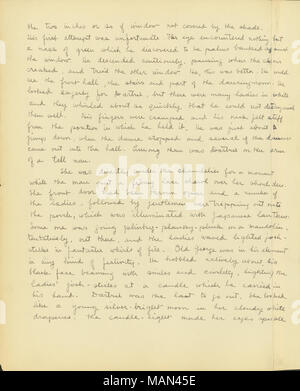 the two inches or so of window not covered by the shade.
His first attempt was unfortunate. His eye encountered nothing but
a mass of green which he discovered to be palms banked against
the window. He descended cautiously, pausing when the chair
creaked, and tried the other window. Ah, this was better. He could
see the front hall, the stairs and part of the dancing-room. He
looked eagerly for Doütreé, but there were many ladies in white
and they whirled about so quickly, that he could not distinguish
them well. His fingers were cramped and his neck felt stiff
from the position in which he held it, he was just about to
jump down when the dance stopped and several of the dancers
came out into the hall. Among them was on the arm
of a tall man.
She was directly under the chandelier for a moment
while the man was her shawl over her shoulders.
The front door was and a number of
the ladies, followed by gentlemen, were trooping out onto
the porch, which was illuminated with Japanese lanterns.
Some one was going plinkety-plunkety-plunk on a mandolin,
tentatively, out there and the ladies waved lighted josh-
sticks in lustrous whirls of fire. Old George was in his element
in any kind of festivity. He hobbled actively about, his
black face beaming with smiles and civility, lighting the
ladies' josh-sticks at a candle which he carried in
his hand. was the last to go out. She looked
like a young silver-bright moon in her cloudy white
draperies. The candle-light made her eyes sparkle
alamy
Image ID: MAN45E
www.alamy.com